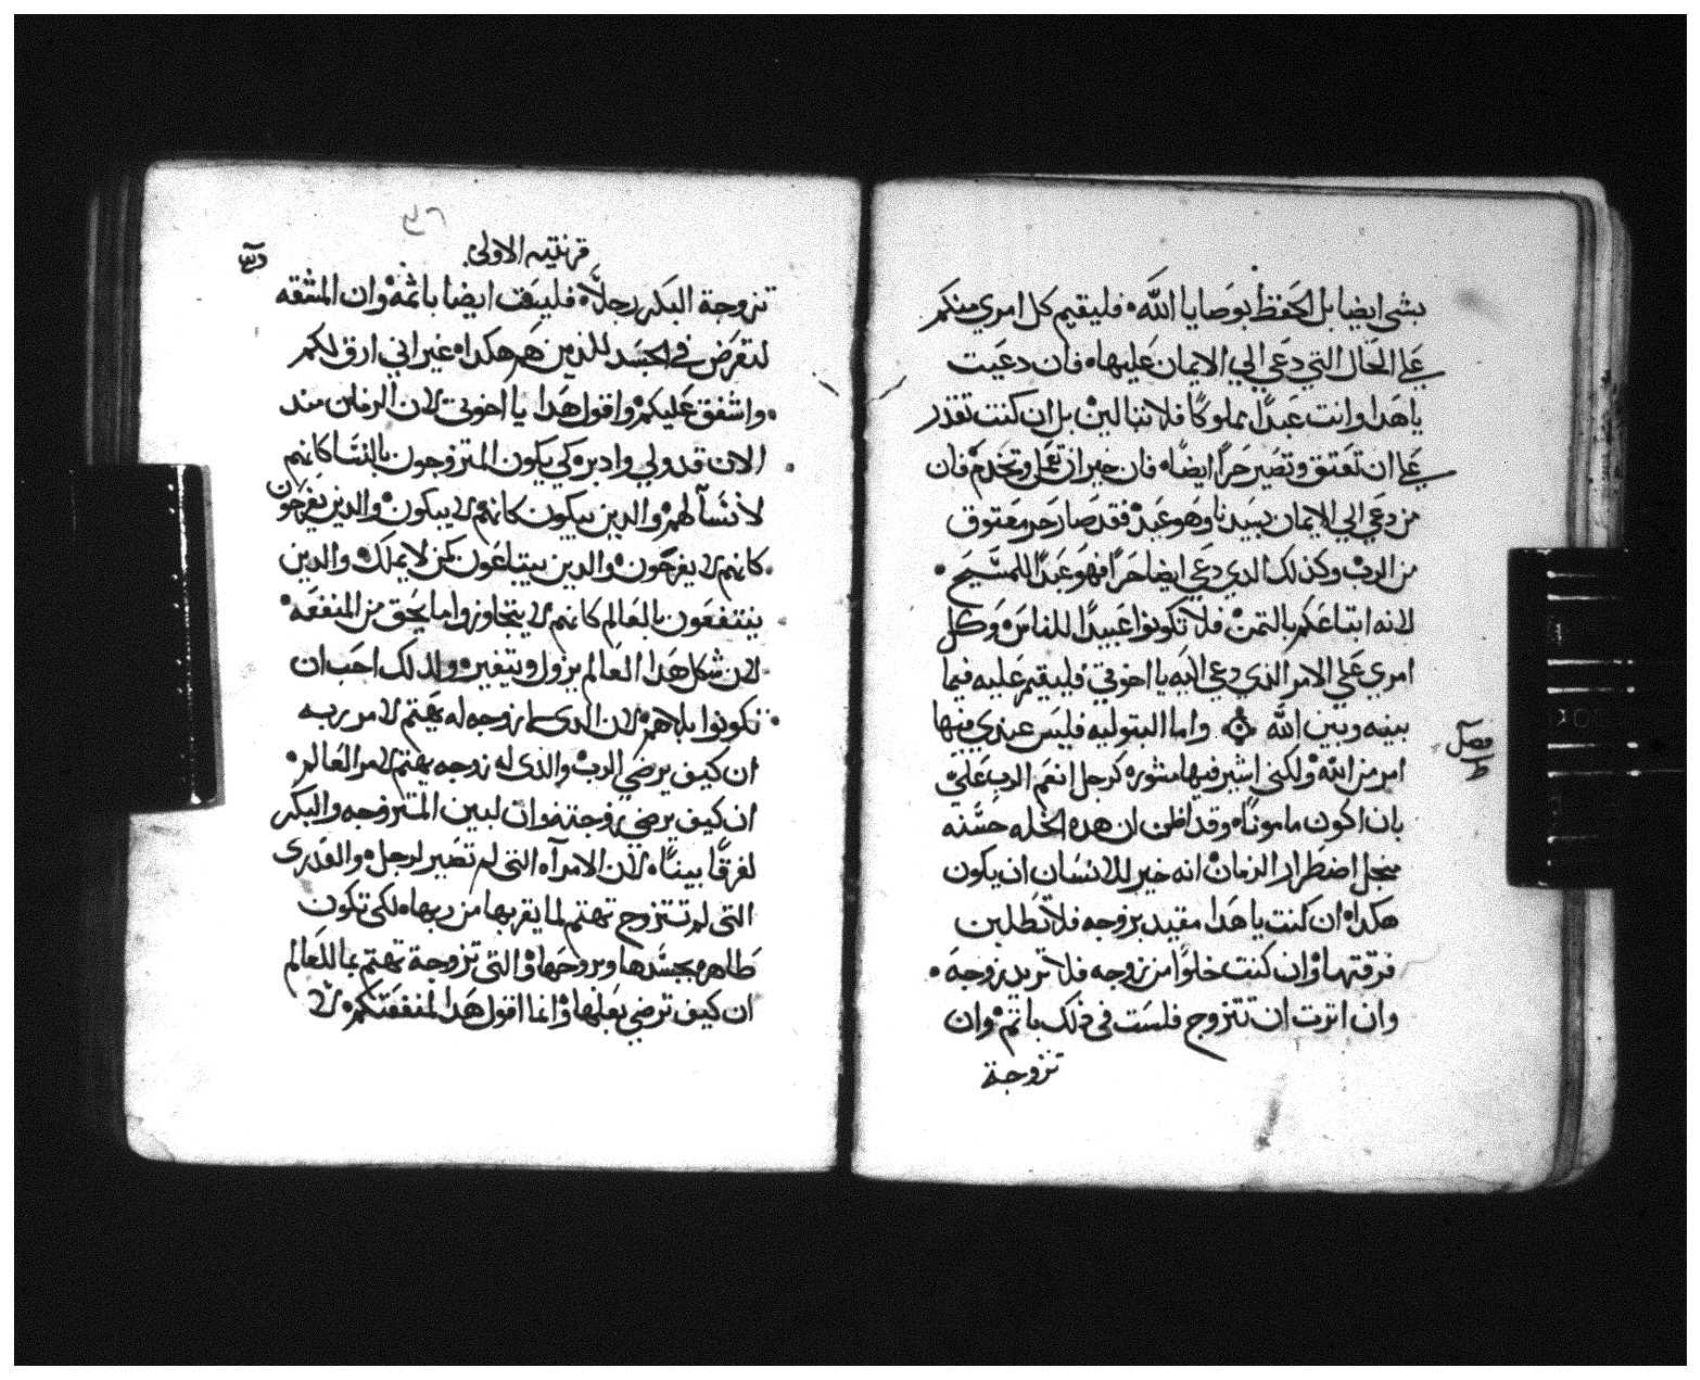 بشي ايضا بل الحفظ بوصايا الله فليقيم كل امري منكم
علي الحال التي دعي الي الايمان عليها فان دعيت
يا هدا وانت عبدًا مملوكًا فلا تبالين بل ان كنت تقدر
علي ان تعتق وتصير حرًا ايضًا فان خير ان تعمل وتخدم فان
من دعي الي الايمان بسيدنا وهو عبد فقد صار حر معتوق
من الرب وكذلك الدي دعي ايضا حرًا فهو عبدًا للمسيح
لانه ابتاعكم بالتمن فلا تكونوا عبيدًا للناس وكل
امري علي الامر الذي دعي اليه يا اخوتي فليقيم عليه فيما
بينه وبين الله واما البتوليه فليس عندي فيها
فصل
ط
امر من الله ولكني اشير فيها مشوره كرجل انعم الرب علي
بان اكون مامونًا وقد اظن ان هده الخله حسنه
مجل اضطرار الزمان انه خير للانسان ان يكون
هكدا ان كنت يا هدا مقيد بزوجه فلا تطلبن
فرقتها وان كنت خلوًا من زوجه فلا تريد زوجه
وان اترت ان تتزوج فلست في ذلك باتم وان
تزوجة
قرنتيه الاولي
تزوجة البكر رجلًا فليست ايضا باثمه وان المشقه
لتعرض في الجسد للذين هم هكدا غير اني ارق لكم
واشفق عليكم واقول هدا يا اخوتي لان الزمان مند
الان قد ولي وادبر كي يكون المتزوجون بالنسا كانهم
لا نسآ لهم والدين يبكون كانهم لا يبكون والدين يفرحون
كانهم لا يفرحون والدين يبتاعون كمن لا يملك والدين
ينتفعون بالعالم كانهم لا يتجاوزوا ما يحق من المنفعه
لان شكل هدا العالم يزول ويتغير ولدلك احب ان
تكونوا بلا هم لان الدي لا زوجه له يهتم لامر ربه
ان كيف يرضي الرب والذي له زوجه يهتم لامر العالم
ان كيف يرضي زوجته وان لبين المتزوجه والبكر
لفرقًا بينًا لان الامرآه التي لم تصير لرجل والعدري
التي لم تتزوج تهتم لما يقربها من ربها لكي تكون
طاهره بجسدها وبروحها والتي تزوجة تهتم بما للعالم
ان كيف ترضي بعلها وانما اقول هدا لمنفعتكم لا